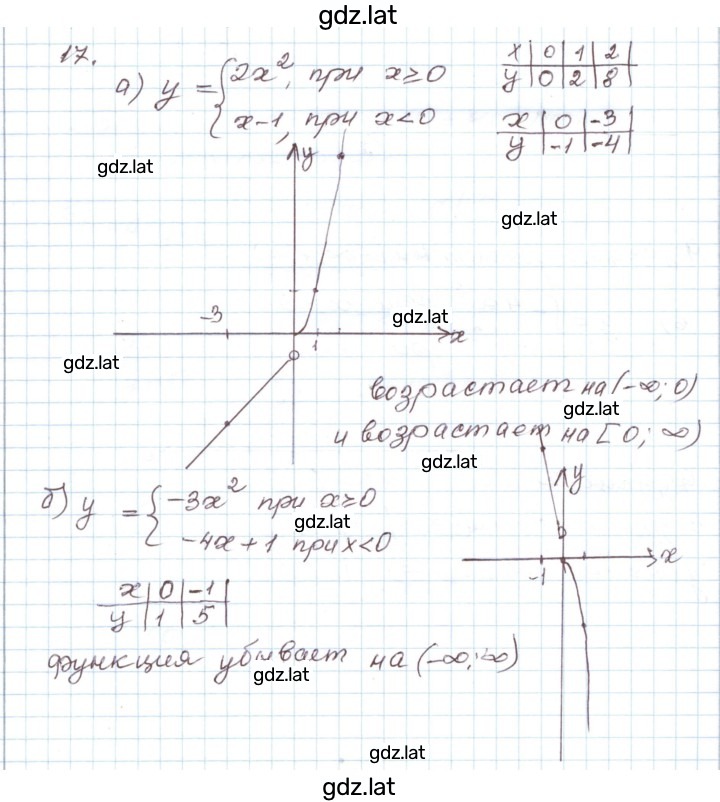 gdz.lat
17.
а) y = {2x², при x≥0
x-1, при x<0
x | 0 | 1 | 2 |
y | 0 | 2 | 8 |
x | 0 | -3 |
y | -1 | -4 |
gdz.lat
gdz.lat
y
-3
1
x
gdz.lat
gdz.lat
возрастает на (-∞; 0)
gdz.lat
и возрастает на [0; ∞)
gdz.lat
б) y = {-3x² при x≥0
-4x+1 при x<0
gdz.lat
y
x
-1
x | 0 | -1 |
y | 1 | 5 |
функция убывает на (-∞; ∞)
gdz.lat
gdz.lat
gdz.lat